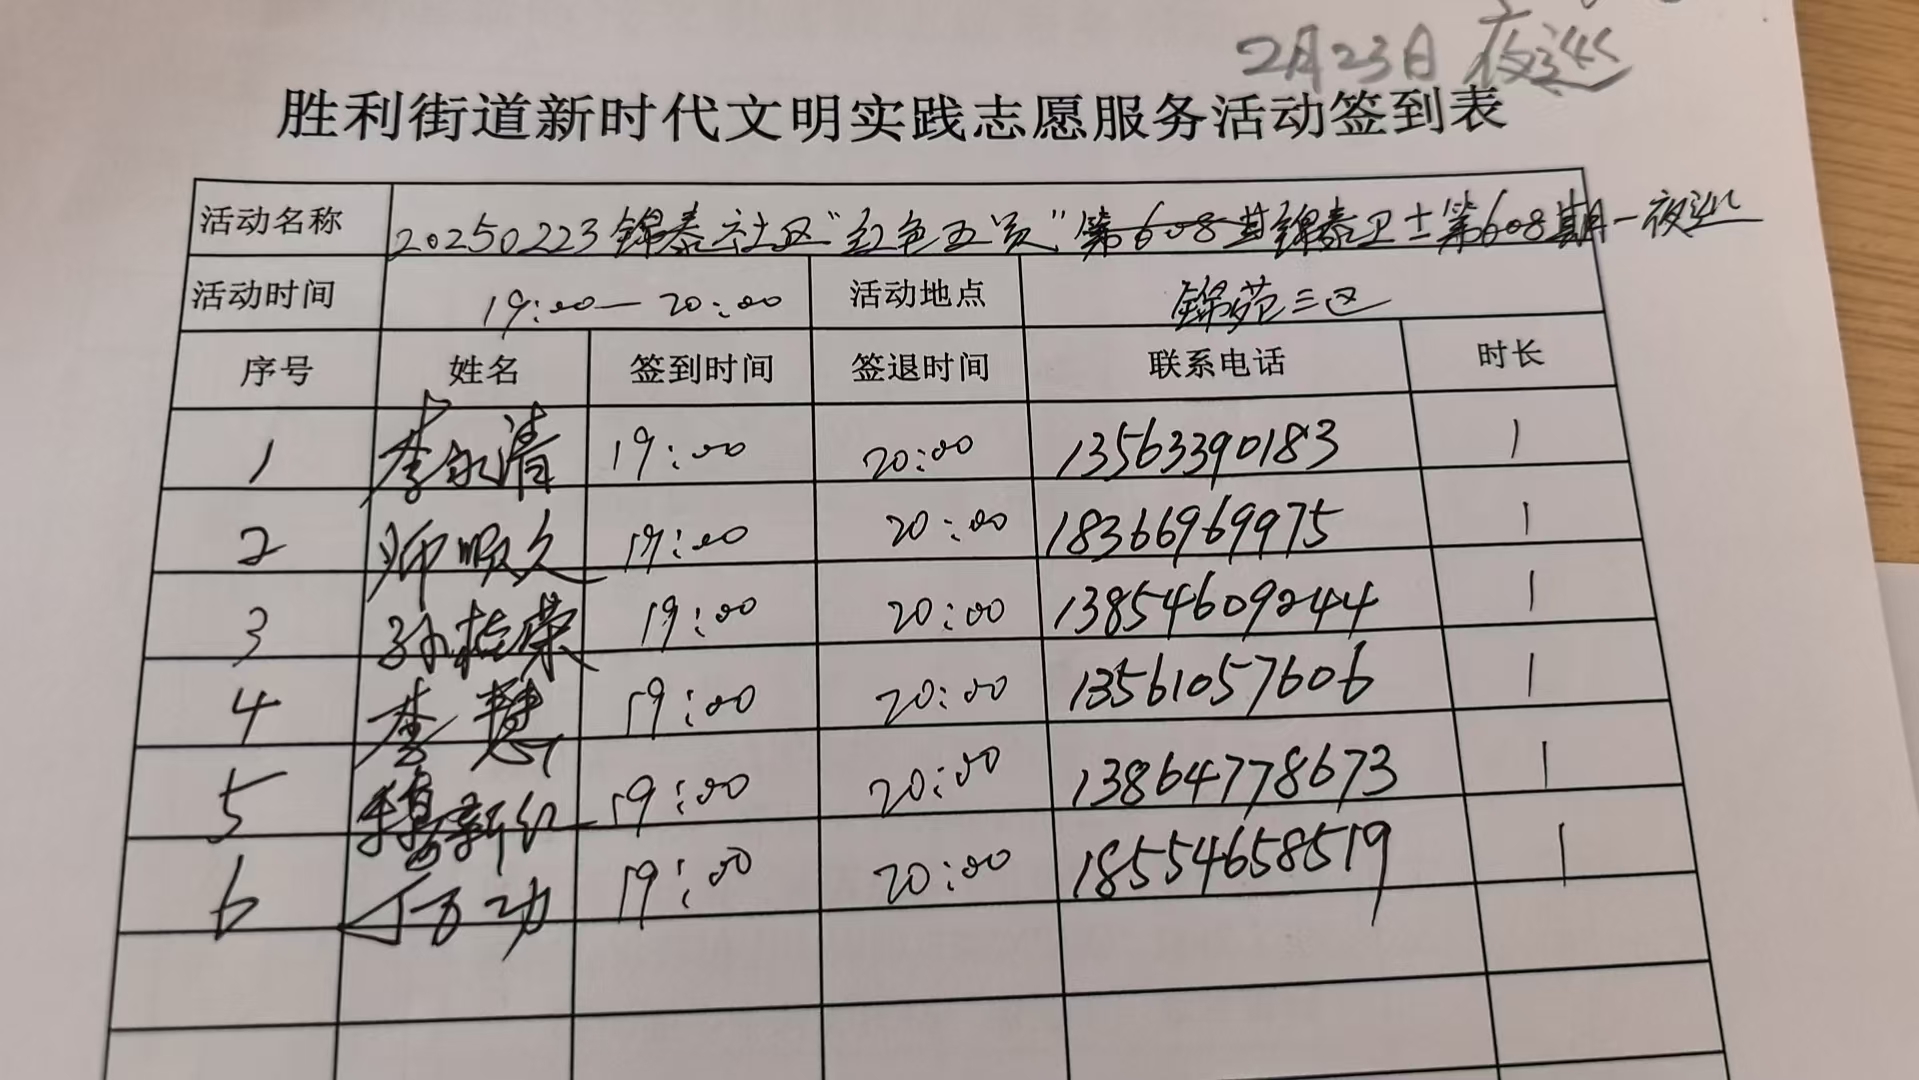 2月23日 夜巡
胜利街道新时代文明实践志愿服务活动签到表
活动名称 20250223锦泰社区“红色五员”锦泰卫士第608期-夜巡
活动时间 19:00-20:00 活动地点 锦苑三区
序号 姓名 签到时间 签退时间 联系电话 时长
1 李永清 19:00 20:00 13563390183 1
2 19:00 20:00 18366969975 1
3 孙桂荣 19:00 20:00 13854609244 1
4 李慧 19:00 20:00 13561057606 1
5 新红 19:00 20:00 13864778673 1
6 19:00 20:00 18554658519 1